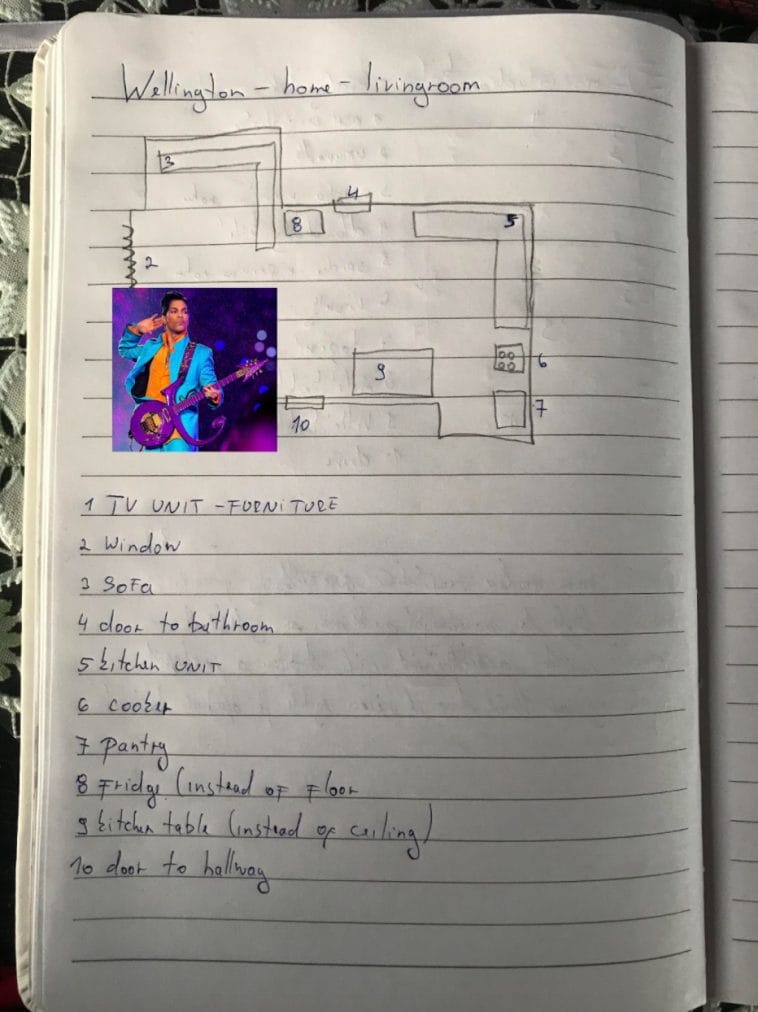 Wellington - home - livingroom
3
4
8
5
2
9
6
7
10
1 TV UNIT - FURNITURE
2 Window
3 SOFA
4 door to bathroom
5 kitchen UNIT
6 cooker
7 pantry
8 Fridge (instead of Floor
9 kitchen table (instead of ceiling)
10 door to hallway